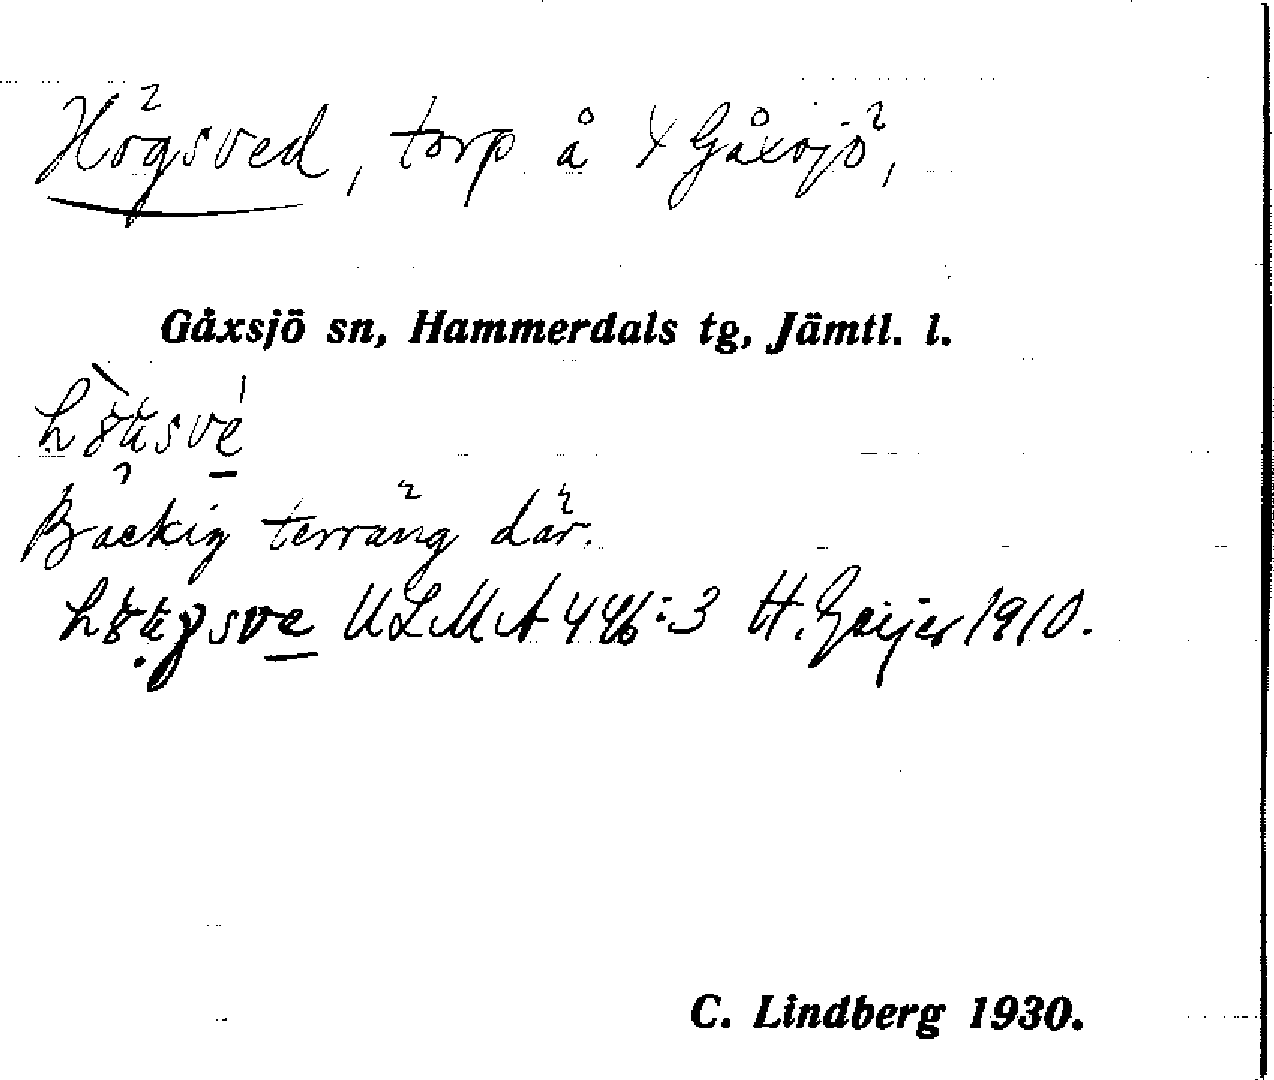 Högsved, torp å 4 Gåxsjö,
Gåxsjö sn, Hammerdals tg, Jämtl. l.
Backig terräng där.
ULMA 446:3 H. Geijer 1910.
C. Lindberg 1930.